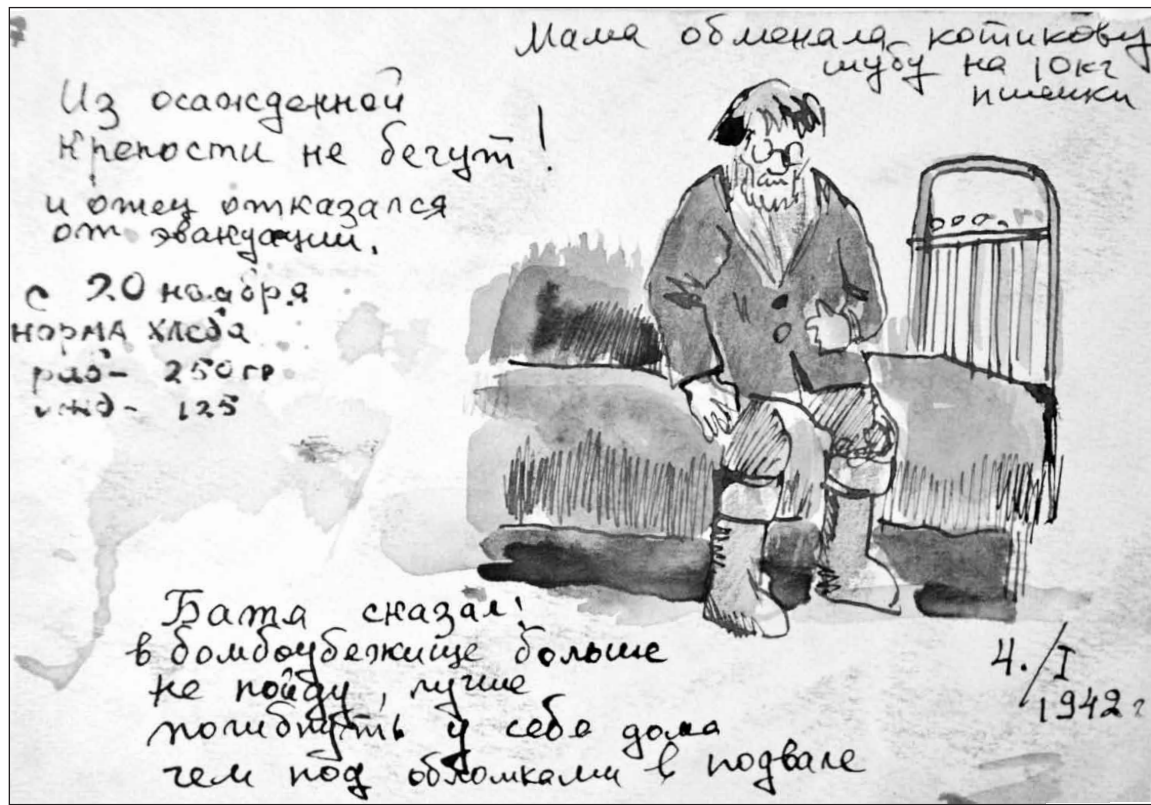 Мама обменяла котикову
шубу на 10 кг
пшенки
Из осажденной
крепости не бегут!
и отец отказался
от эвакуации.
с 20 ноября
норма хлеба
раб- 250 гр
ижд- 125
Батя сказал:
в бомбоубежище больше
не пойду, лучше
погибнуть у себя дома
чем под обломками в подвале
4./I
1942 г